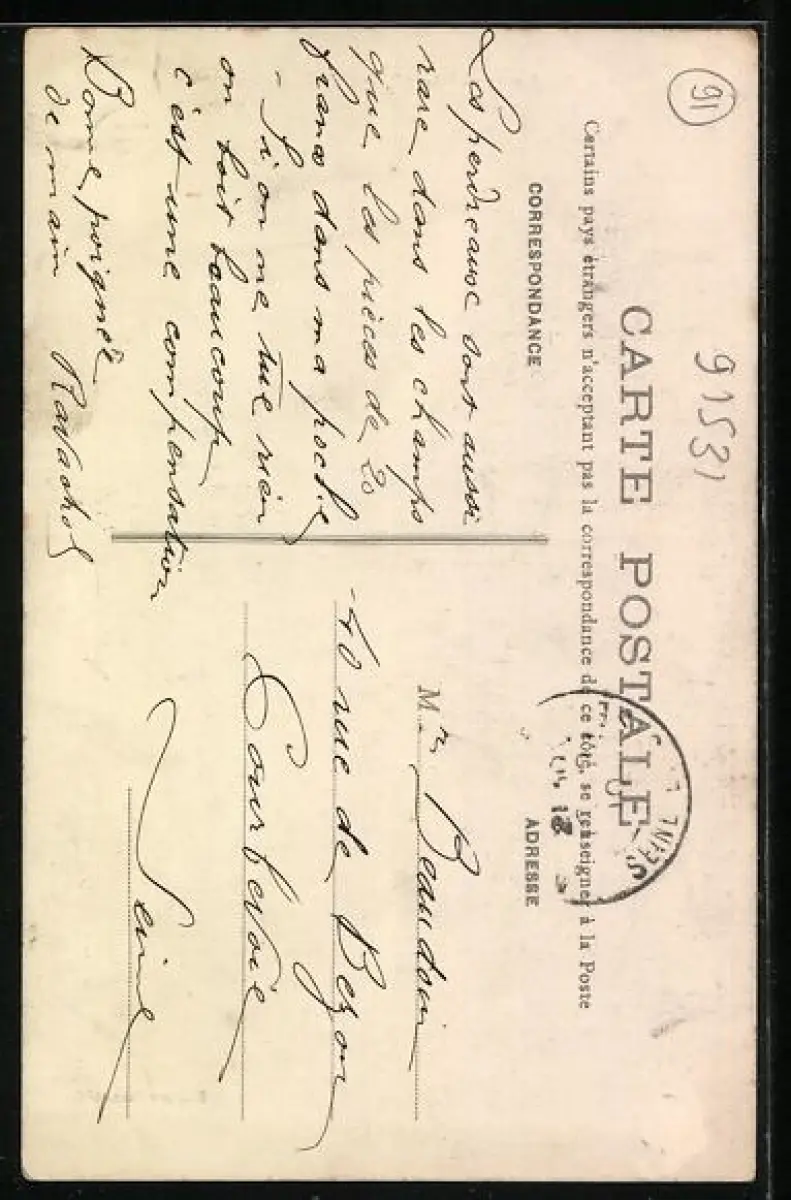 91
91531
CARTE POSTALE
Certains pays étrangers n'acceptant pas la correspondance de ce côté, se renseigner à la Poste
CORRESPONDANCE
Les perdreaux sont aussi
rare dans les champs
que les pièces de 20
francs dans ma poche
- Si on ne tue rien
on boit beaucoup
c'est une compensation
Bonne poignée
de main Ravachol
ADRESSE
Mr Beaudoin
-40 rue de Bezon
Courbevoie
Seine
SEINE